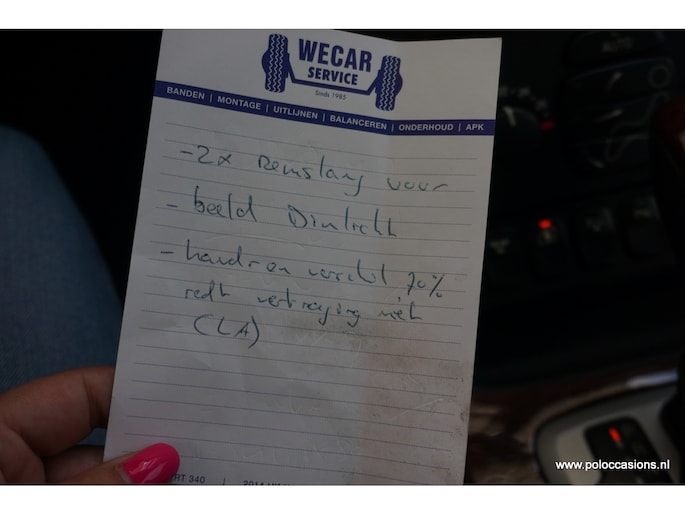 WECAR
SERVICE
Sinds 1985
BANDEN | MONTAGE | UITLIJNEN | BALANCEREN | ONDERHOUD | APK
- 2x Remslang voor
- beeld Dimlicht
- handrem verschil 70%
redt vertraging niet
(LA)
RT 340 |
AUTO
www.poloccasions.nl